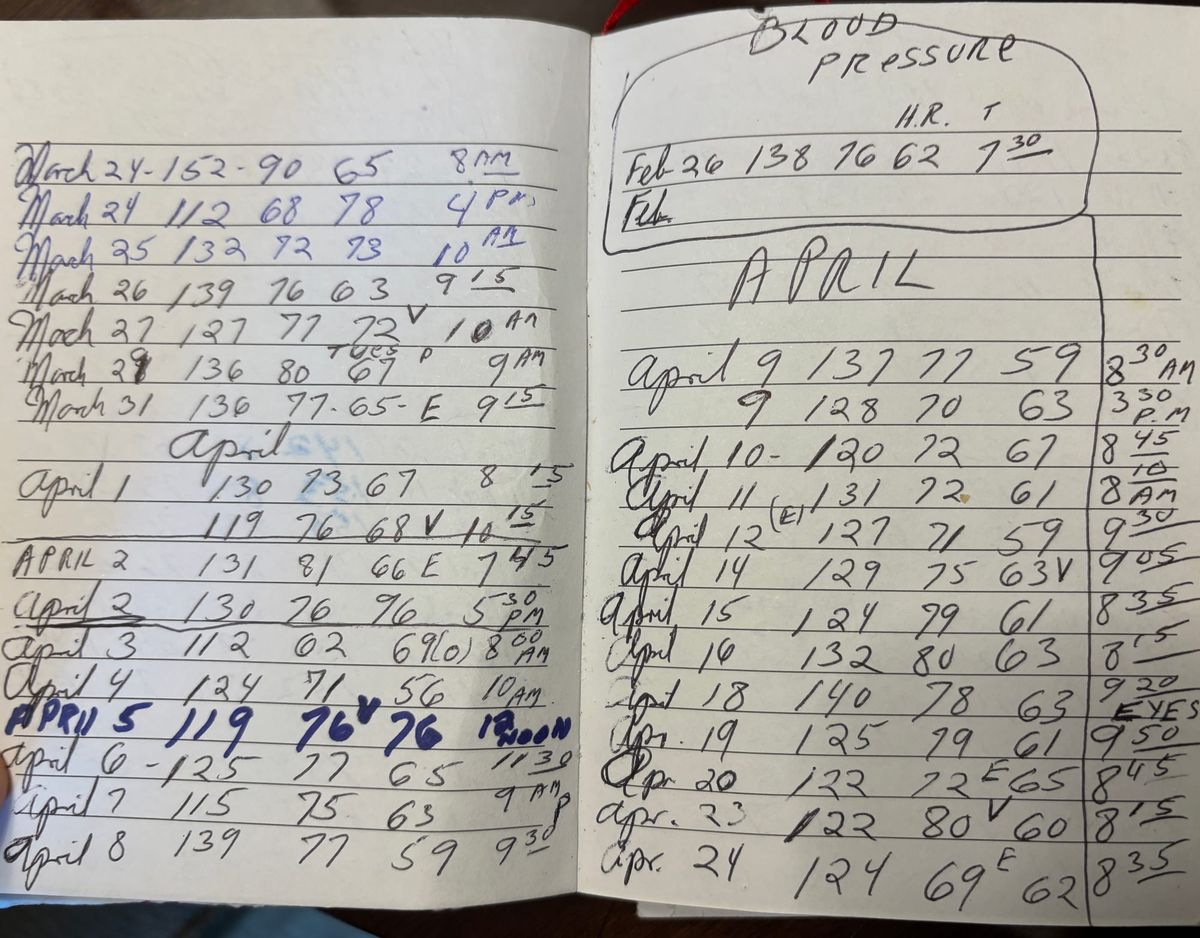 March 24 - 152 - 90 65 8 AM
March 24 112 68 78 4 PM
March 25 132 72 73 10 AM
March 26 139 76 63 9 15
March 27 127 77 72 V 10 AM
TUES P
March 29 136 80 67 9 AM
March 31 136 77 - 65 - E 9 15
April
April 1 130 73 67 8 15
119 76 68 V 10 15
APRIL 2 131 81 66 E 7 45
April 2 130 76 96 5 30 PM
April 3 112 62 69 (0) 8 00 AM
April 4 124 71 56 10 AM
APRIL 5 119 76 V 76 12 NOON
April 6 - 125 77 65 11 30
April 7 115 75 63 9 AM P
April 8 139 77 59 9 30
BLOOD
PRESSURE
H.R. T
Feb 26 138 76 62 7 30
Feb
APRIL
April 9 137 77 59 8 30 AM
9 128 70 63 3 30 P.M
April 10 - 120 72 67 8 45
April 11 131 72 61 8 10 AM
April 12 (E) 127 71 59 9 30
April 14 129 75 63 V 9 05
April 15 124 79 61 8 35
April 16 132 80 63 8 15
April 18 140 78 63 9 20
EYES
Apr. 19 125 79 61 9 50
Apr 20 122 72 E 65 8 45
Apr. 23 122 80 V 60 8 15
Apr. 24 124 69 E 62 8 35